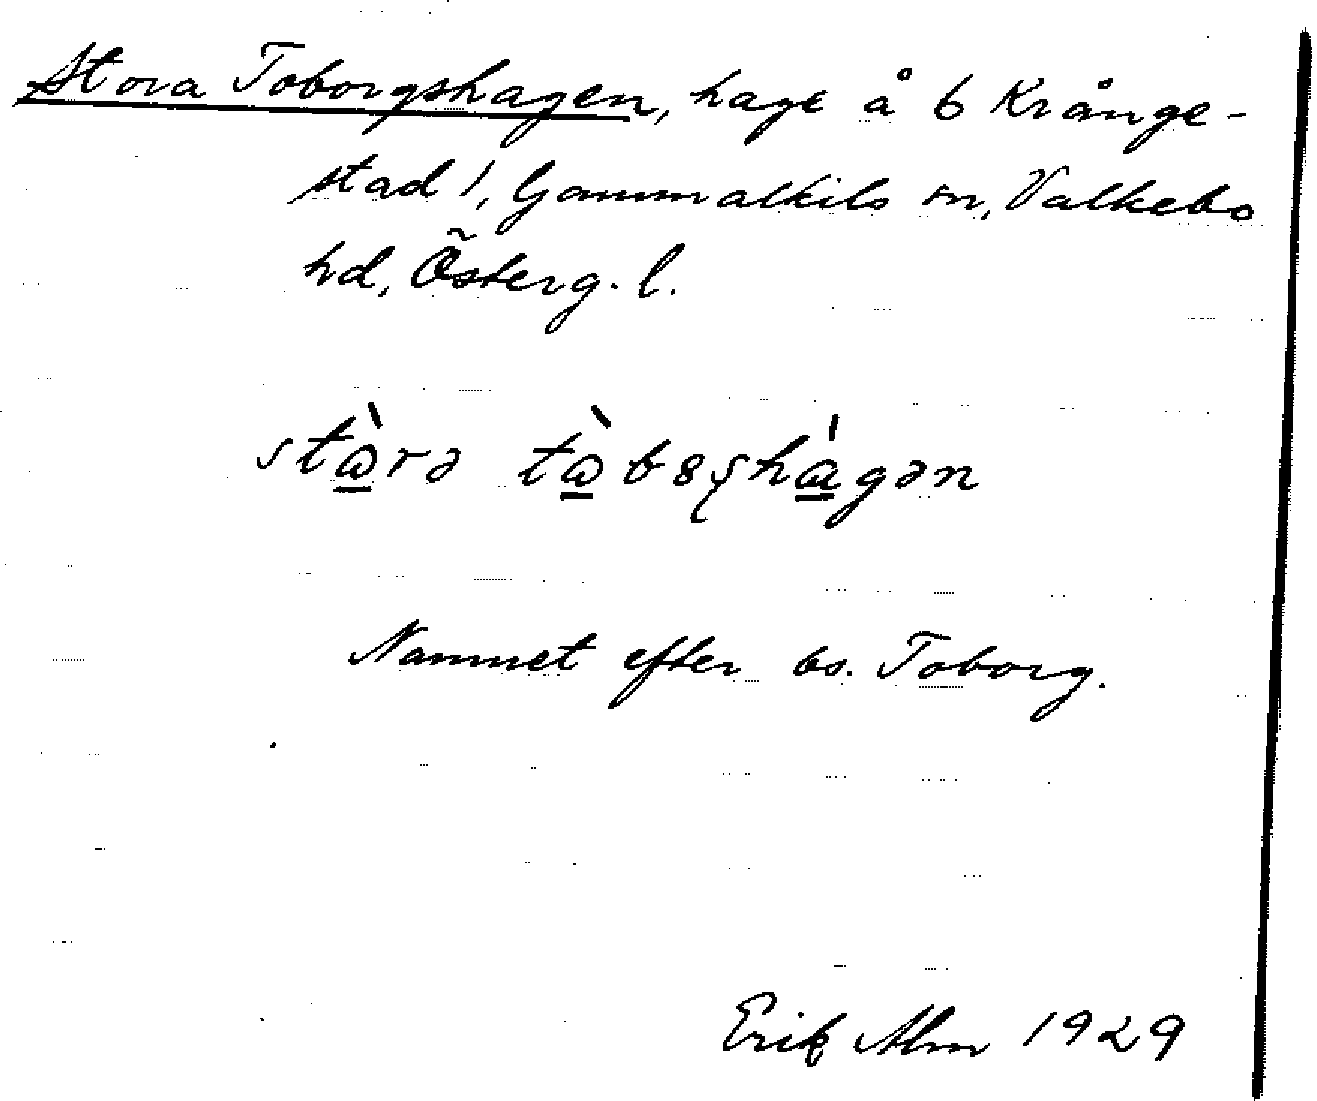 Stora Toborgshagen, hage å 6 Krånge-
stad 1, Gammalkils sn, Valkebo
hd, Österg. l.
stɷ̀rə tɷ̀bɞʂhɑ̀gən
Namnet efter bs. Toborg.
Erik Alm 1929